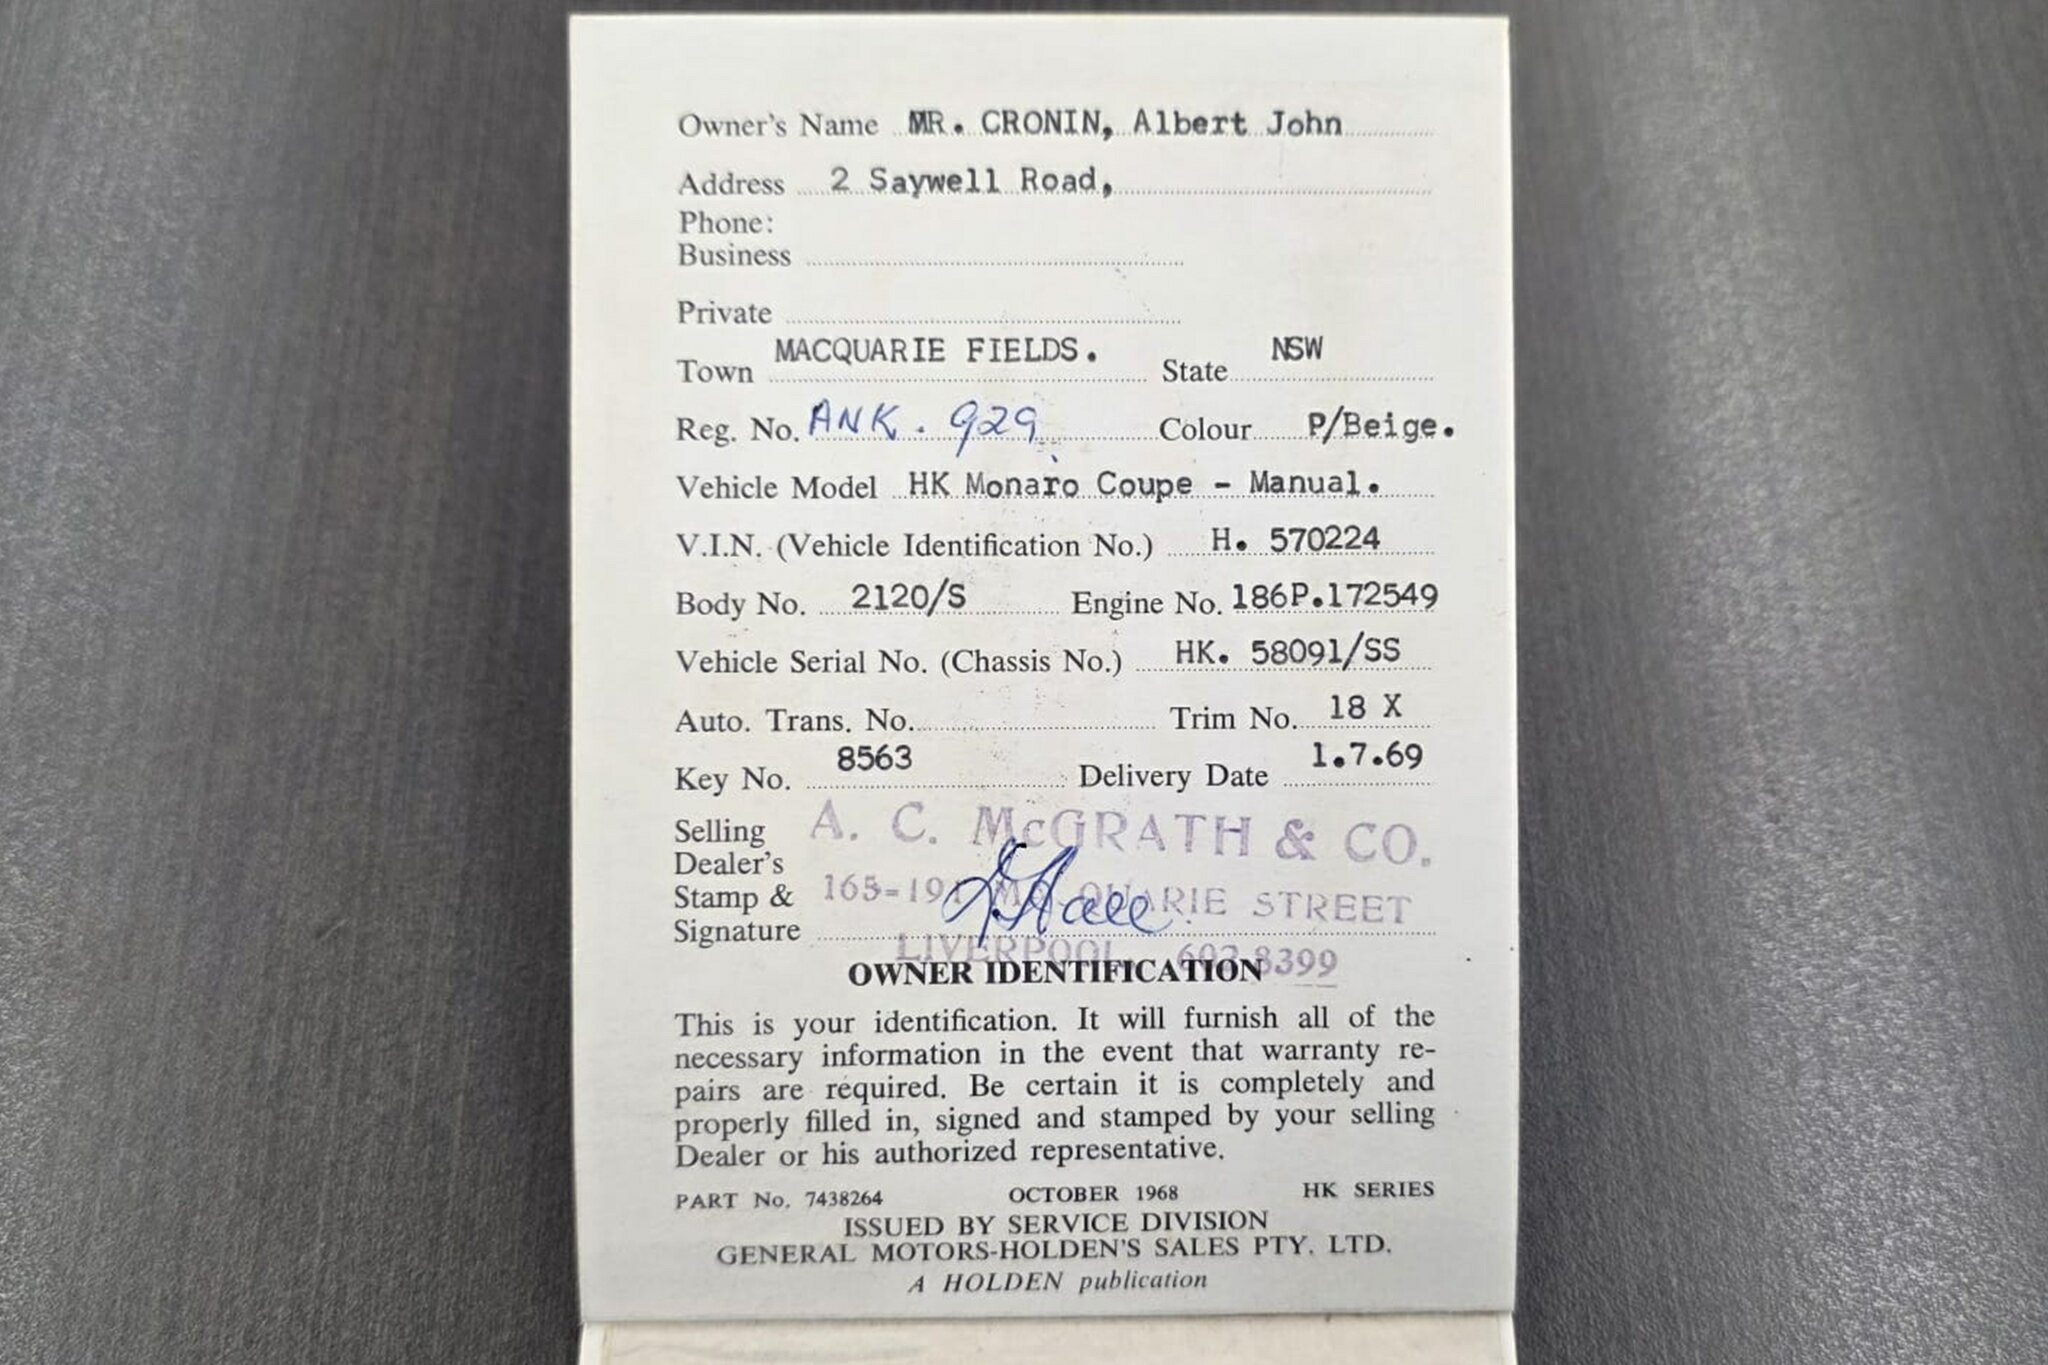 Owner's Name MR. CRONIN, Albert John
Address 2 Saywell Road,
Phone:
Business
Private
Town MACQUARIE FIELDS. State NSW
Reg. No. ANK. 929 Colour P/Beige.
Vehicle Model HK Monaro Coupe - Manual.
V.I.N. (Vehicle Identification No.) H. 570224
Body No. 2120/S Engine No. 186P.172549
Vehicle Serial No. (Chassis No.) HK. 58091/SS
Auto. Trans. No. Trim No. 18 X
Key No. 8563 Delivery Date 1.7.69
Selling
Dealer's
Stamp &
Signature
A. C. McGRATH & CO.
STREET
LIVERPOOL.
OWNER IDENTIFICATION
This is your identification. It will furnish all of the
necessary information in the event that warranty re-
pairs are required. Be certain it is completely and
properly filled in, signed and stamped by your selling
Dealer or his authorized representative.
PART No. 7438264 OCTOBER 1968 HK SERIES
ISSUED BY SERVICE DIVISION
GENERAL MOTORS-HOLDEN'S SALES PTY. LTD.
A HOLDEN publication